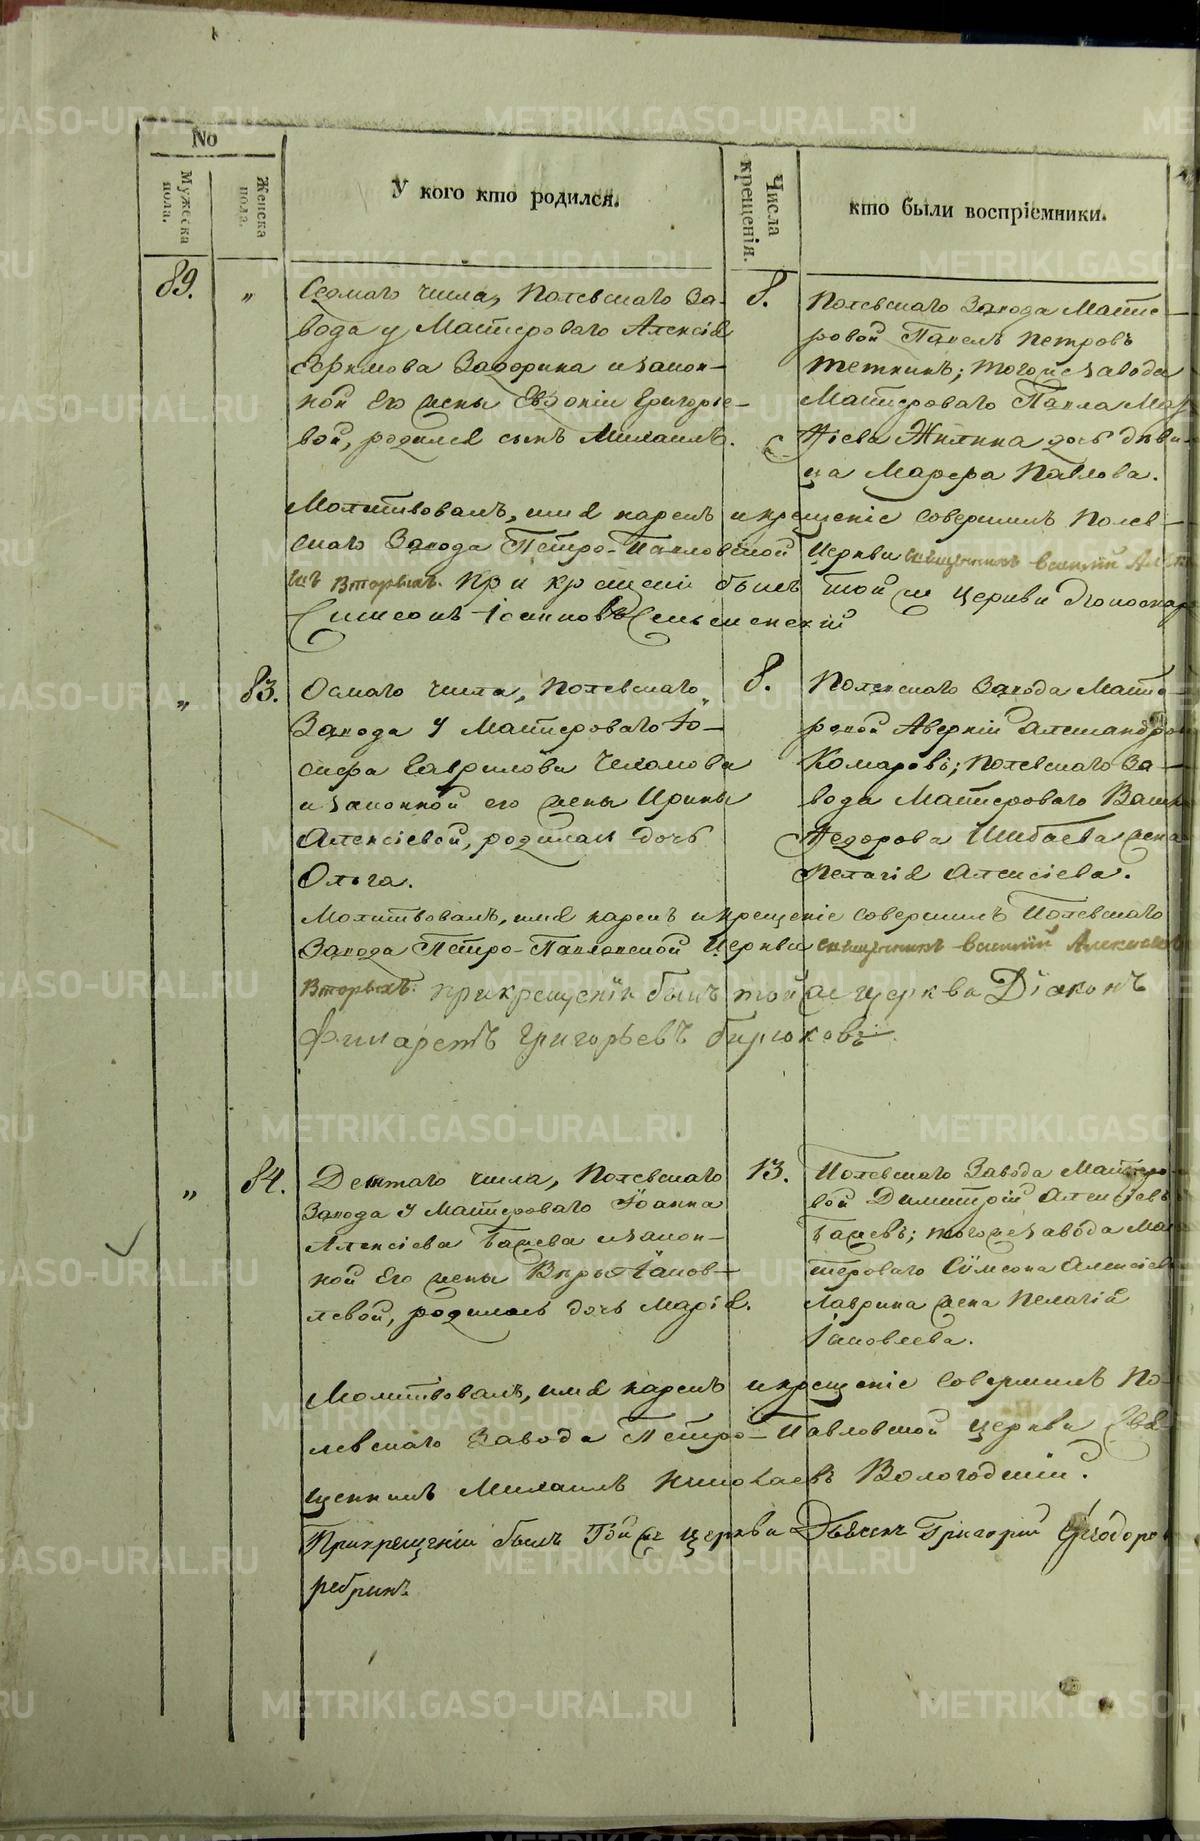 No
Мужеска пола.
Женска пола.
У кого кто родился.
Числа крещенія.
кто были воспріемники.
89.
"
Седмаго числа, Полевскаго За-
вода у Мастероваго Алексія
Ефимова Задорина и закон-
ной Его жены Евдокіи Григорье-
вой, родился сынъ Михаилъ.
8.
Полевскаго Завода Масте-
ровой Павелъ Петровъ
того же завода
Мастероваго Павла
Жилина дочь дѣви-
ца Марфа Павлова.
Молитвовалъ, имя нарекъ и крещеніе совершилъ Полев-
скаго Завода Петро-Павловской Церкви священникъ Василій
Вторыхъ. При крещеніи былъ той же церкви
Симеонъ Іоанновъ
"
83.
Осмаго числа, Полевскаго
Завода у Мастероваго Іо-
сифа Гаврилова
и законной его жены Ирины
Алексіевой, родилась дочь
Ольга.
8.
Полевскаго Завода Масте-
ровой Аверкій Александров
Комаровъ; Полевскаго За-
вода Мастероваго
Федорова Шибаева жена
Пелагія Алексіева.
Молитвовалъ, имя нарекъ и крещеніе совершилъ Полевскаго
Завода Петро-Павловской Церкви священникъ Василій
Вторыхъ. при крещеніи былъ той же церкви Діаконъ
Филаретъ Григорьевъ Бирюковъ.
"
84.
Девятаго числа, Полевскаго
Завода у Мастероваго Іоанна
Алексіева Бажева и закон-
ной Его жены Вѣры Іаков-
левой, родилась дочь Марія.
13.
Полевскаго Завода Мастеро-
вой Димитрій Алексіевъ
Бажевъ; того же завода Мас-
тероваго Сѵмеона Алексіев
Лаврина жена Пелагія
Іаковлева.
Молитвовалъ, имя нарекъ и крещеніе совершилъ По-
левскаго Завода Петро-Павловской церкви Свя-
щенникъ Михаилъ Николаевъ Вологодскій.
При крещеніи былъ той же церкви Григорій
METRIKI.GASO-URAL.RU